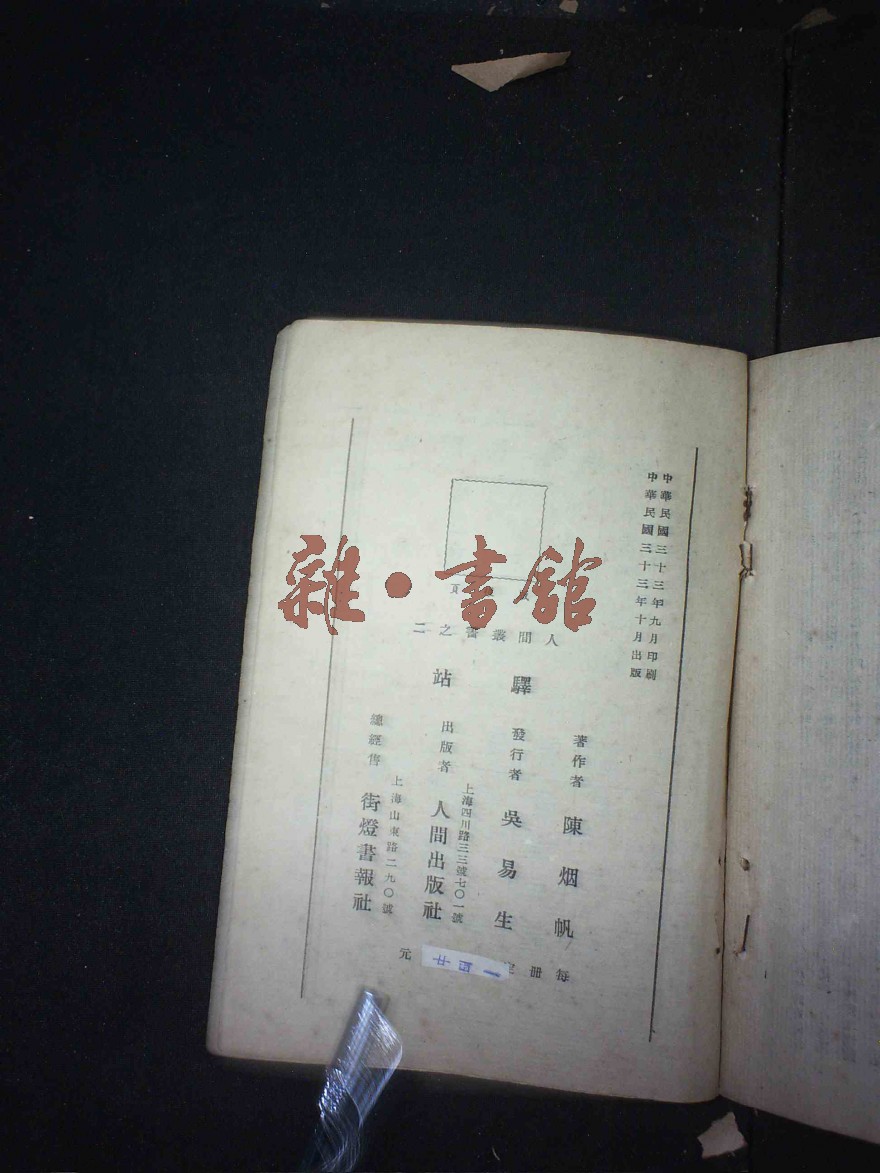 中華民國三十三年九月印刷
中華民國三十三年十月出版
人間叢書之二
驛站
著作者 陳烟帆
發行者 吳易生
上海四川路三三號七〇一號
出版者 人間出版社
上海山東路二九〇號
總經售 街燈書報社
每冊定
元
雜·書館